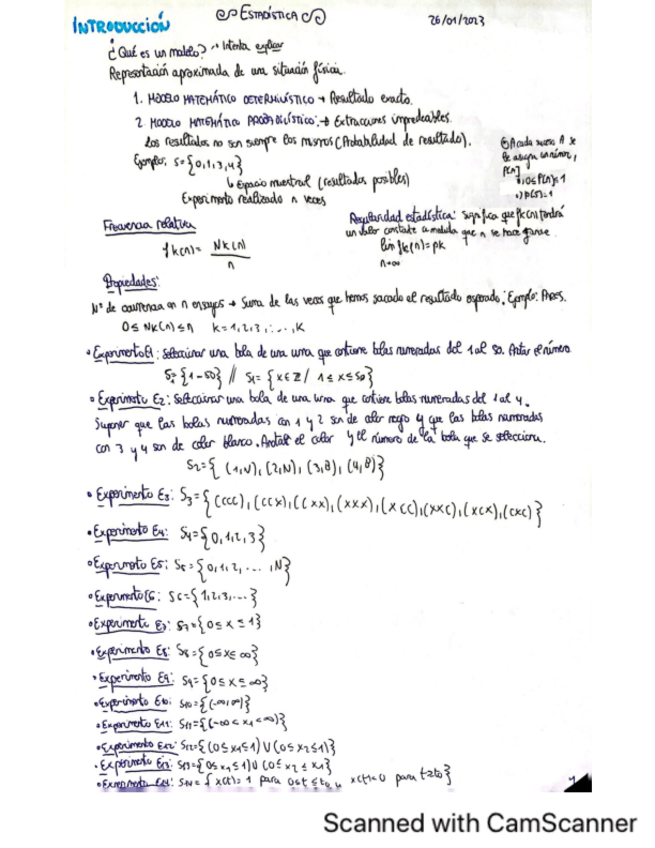 ESTADÍSTICA
INTRODUCCIÓN
26/01/2023
¿Qué es un modelo? → Intenta explicar
Representación aproximada de una situación física.
1. MODELO MATEMÁTICO DETERMINÍSTICO → Resultado exacto.
2 MODELO MATEMÁTICO PROBABILÍSTICO: → Extracciones impredecibles.
Los resultados no son siempre los mismos (Probabilidad de resultado).
Ejemplo: S={0,1,2,3,4}
↳ Espacio muestral (resultados posibles)
Experimento realizado n veces
A cada suceso A se
le asigna un número,
P[A]
0≤P[A]≤1
P[S]=1
Frecuencia relativa
fk(n) = Nk(n)
n
Regularidad estadística: significa que fk(n) tendrá
un valor constante a medida que n se hace grande.
lim fk(n)=pk
n→∞
Propiedades:
Nº de ocurrencia en n ensayos → Suma de las veces que hemos sacado el resultado esperado; Ejemplo: Pares.
0≤ Nk(n) ≤n k=1,2,3,...,K
• Experimento E1: Seleccionar una bola de una urna que contiene bolas numeradas del 1 al 50. Anotar el número
S={1-50} // S1= {x∈Z/ 1≤x≤50}
• Experimento E2: Seleccionar una bola de una urna que contiene bolas numeradas del 1 al 4.
Suponer que las bolas numeradas con 1 y 2 son de color negro y que las bolas numeradas
con 3 y 4 son de color blanco. Anotar el color y el número de la bola que se selecciona.
S2={ (1,N), (2,N), (3,B), (4,B)}
• Experimento E3: S3={(ccc), (ccx), (cxx), (xxx), (xcc), (xxc), (xcx), (cxc)}
• Experimento E4: S4={0,1,2,3}
• Experimento E5: S5={0,1,2,... ,N}
• Experimento E6: S6={1,2,3,...}
• Experimento E7: S7={0≤x≤1}
• Experimento E8: S8={0≤x≤∞}
• Experimento E9: S9={0≤x≤∞}
• Experimento E10: S10={(-∞,∞)}
• Experimento E11: S11={(-∞<x1<∞)}
• Experimento E12: S12={(0≤x1≤1)U(0≤x2≤1)}
• Experimento E13: S13={0≤x1≤1)U(0≤x2≤x1}
• Experimento E14: S14={x(t)=1 para 0≤t≤t0 u x(t)=0 para t≥t0}
1
Scanned with CamScanner